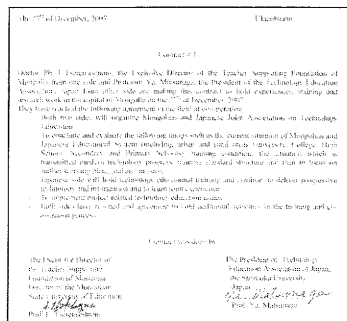 The 27th of December, 2007 Ulaanbaatar
Contract - 1
Doctor Ph. the Executive Director of the Teacher Supporting Foundation of
Mongolia from one side and Professor Ya. Matsunaga, the President of the Technology Education
Association, Japan from other side are making this contract to hold experiences, training and
research work in the capital of Mongolia on the 27th of December 2007.
They were reached the following agreement in the field of co-operation:
Both two sides will organize Mongolian and Japanese Joint Association on Technology
Education
To conclude and evaluate the following things such as the current situation of Mongolian and
Japanese Educational System (including urban and rural areas University, College, High
School, Secondary and Primary Schools) training condition, the situation which is
transmitted modern technology process, training standard structure and then to focus on
Japanese side will hold technology educational training and seminar to deliver progressive
technology and information and to learn from experience
To implement project related technology education issues
Both sides have reached and agreement to hold additional activities in the training and co-
operation process
Contract was done by
The Executive Director of
the Teacher Supporting
Foundation of Mongolia
Director of the Mongolian
State University of Education
Prof.
The President of Technology
Education Association of Japan,
the Shizuoka University
Japan
Ya. Matsunaga
Prof. Ya. Matsunaga